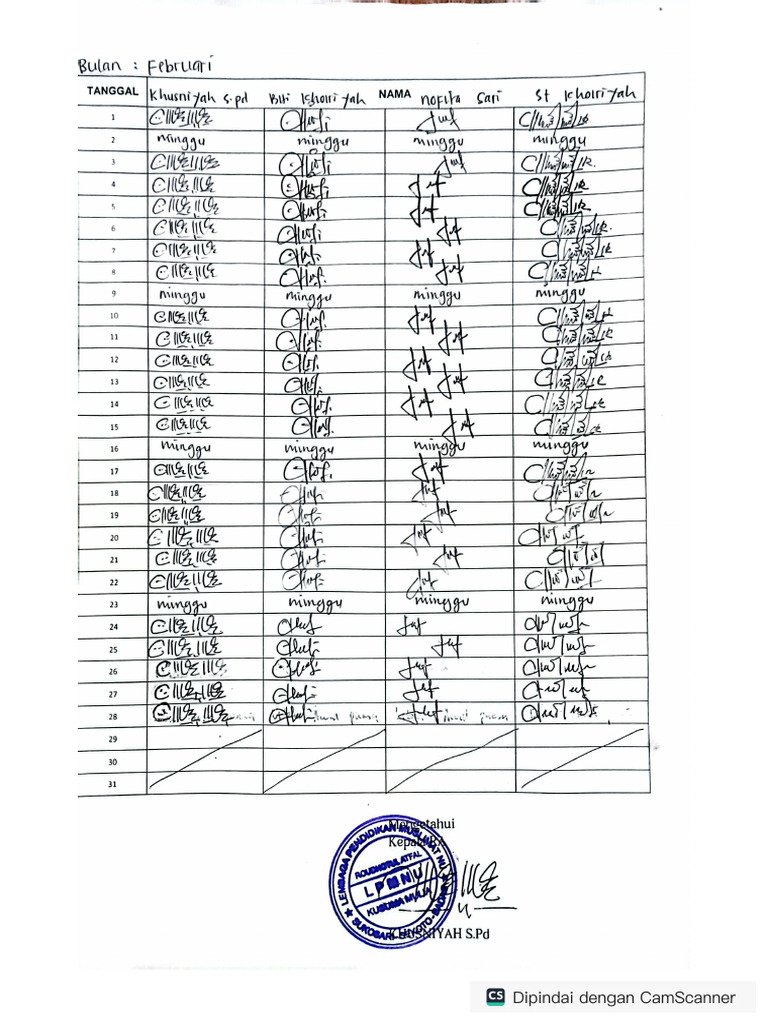 Bulan : Februari
TANGGAL NAMA
Khusniyah S.pd Biti Ichoiriyah nofita Sari St Ichoiriyah
1
2 minggu minggu minggu minggu
3
4
5
6
7
8
9 minggu minggu minggu minggu
10
11
12
13
14
15
16 minggu minggu minggu minggu
17
18
19
20
21
22
23 minggu minggu minggu minggu
24
25
26
27
28
29
30
31
Mengetahui
Kepala RA
LEMBAGA PENDIDIKAN MUSLIMAT NU
ROUDHOTUL ATFAL
LPMNU
KUSUMA MULIA
KHUSNIYAH S.Pd
CS Dipindai dengan CamScanner